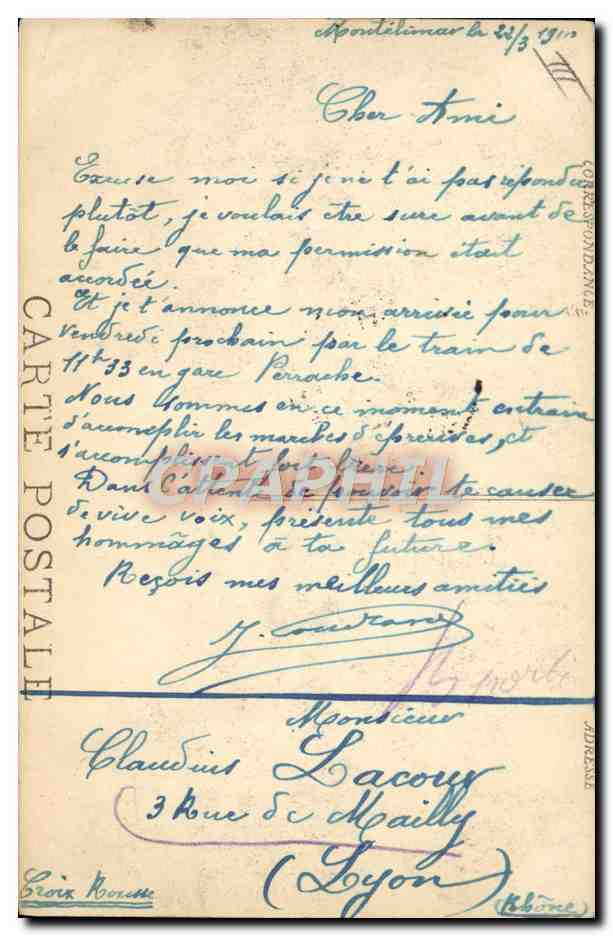 Montélimar le 22/3 19
III
Cher Ami
Excuse moi si je ne t'ai pas répondu
plutôt, je voulais être sure avant de
le faire que ma permission était
accordée.
Et je t'annonce mon arrivée pour
vendredi prochain par le train de
11h33 en gare Perrache.
Nous sommes en ce moment entrain
d'accomplir les marches d'épreuves, et
s'accomplissent fort bien.
Dans l'attente de pouvoir te causer
de vive voix, présente tous mes
hommâges à ta future.
Reçois mes meilleurs amitiés
J.
CARTE POSTALE
CORRESPONDANCE
ADRESSE
CPAPHIL
Monsieur
Claudius Lacour
3 Rue de Mailly
(Lyon)
Croix Rousse
(Rhône)